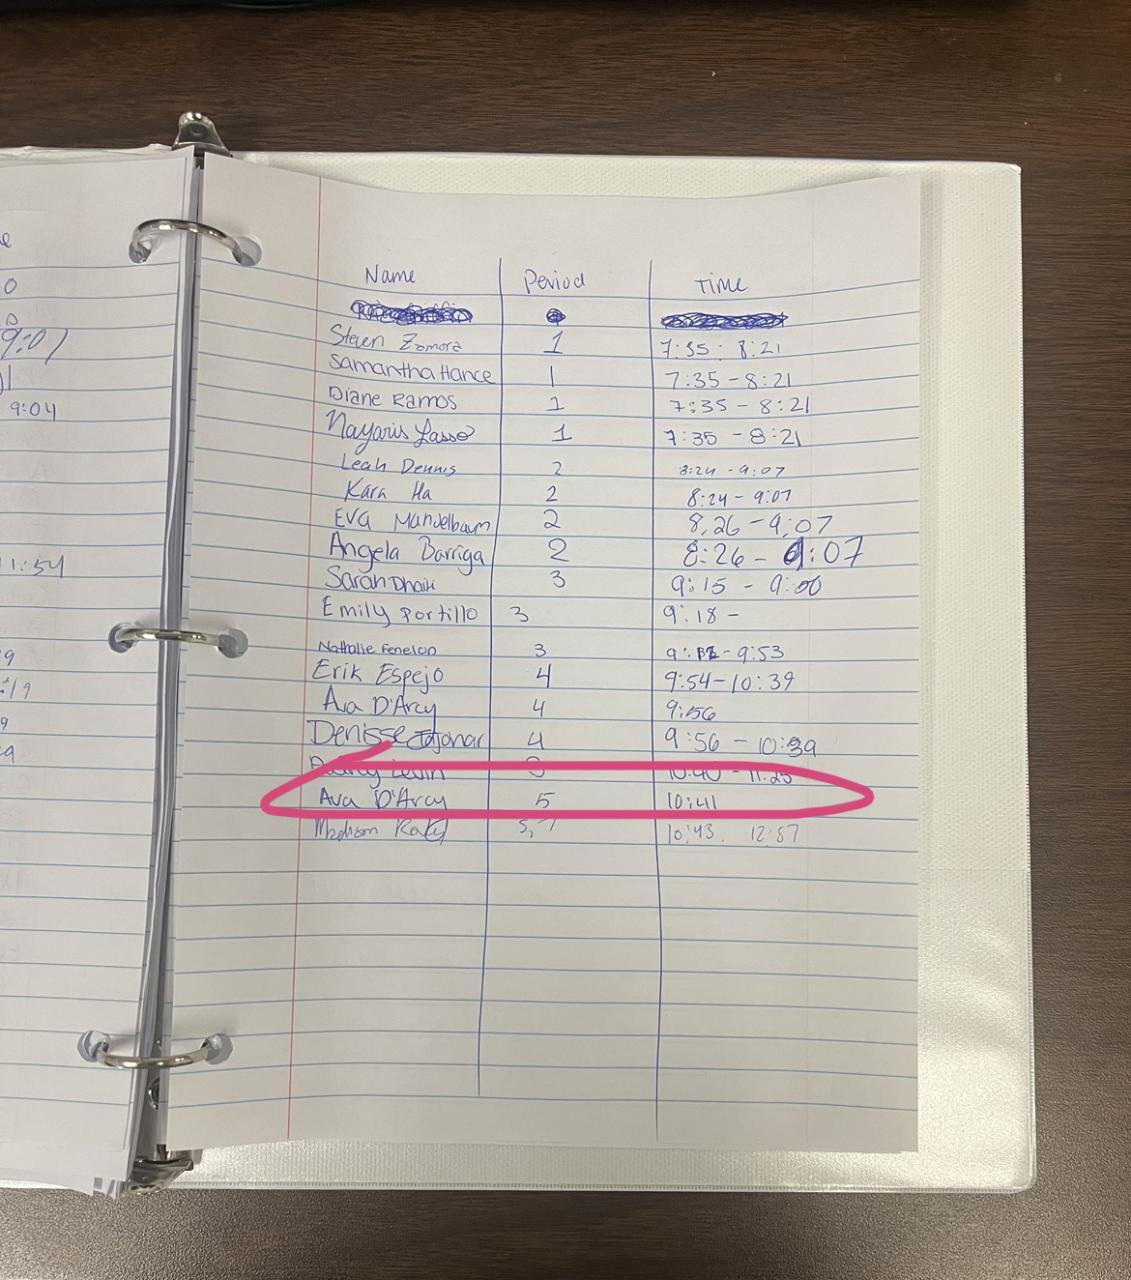 Name Period Time
Steven Zomora 1 7:35 - 8:21
Samantha Hance 1 7:35 - 8:21
Diane Ramos 1 7:35 - 8:21
Nayaris Lasso 1 7:35 - 8:21
Leah Dennis 2 8:24 - 9:07
Kara Ha 2 8:24 - 9:07
Eva Mandelbaum 2 8:26 - 9:07
Angela Barriga 2 8:26 - 9:07
Sarah 3 9:15 - 9:00
Emily Portillo 3 9:18 -
Nathalie Fenelon 3 - 9:53
Erik Espejo 4 9:54 - 10:39
Ava D'Arcy 4 9:56
Denisse 4 9:56 - 10:39
Levin 10:40 - 11:25
Ava D'Arcy 5 10:41
Madison 5, 7 10:43. 12:57
9:07
9:04
11:54